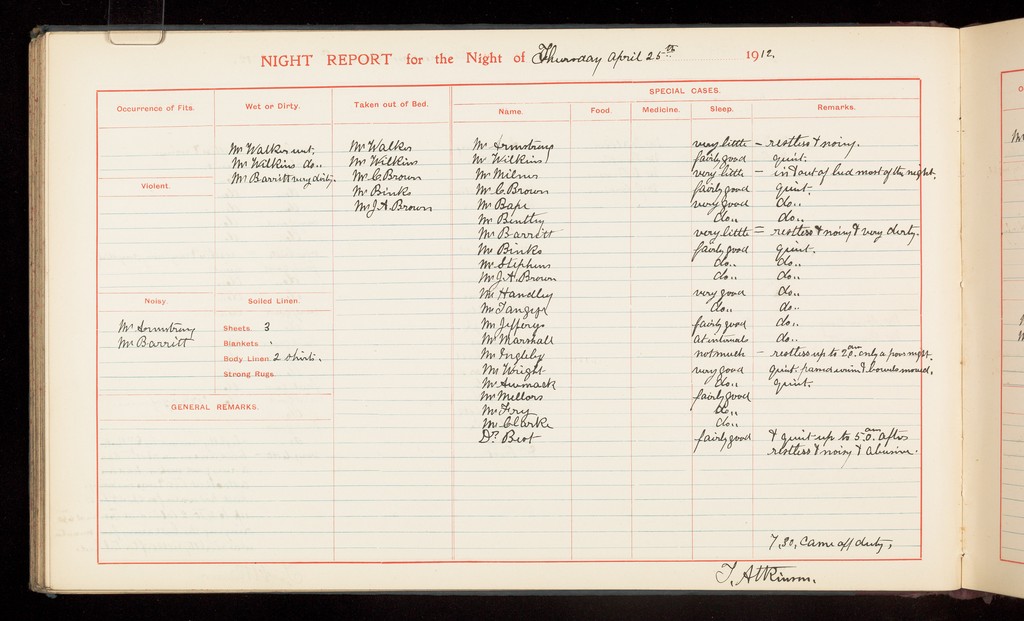 NIGHT REPORT for the Night of Thursday April 25th 1912.
Occurrence of Fits.
Wet or Dirty.
Taken out of Bed.
SPECIAL CASES.
Name.
Food.
Medicine.
Sleep.
Remarks.
Mr Walker wet.
Mr Wilkins do..
Mr Barritt very dirty.
Mr Walker
Mr Wilkins
Mr C. Brown
Mr Binks
Mr J. A. Brown
Violent.
Noisy.
Mr Armstrong
Mr Barritt
Soiled Linen.
Sheets. 3
Blankets.
Body Linen. 2 shirts.
Strong Rugs.
GENERAL REMARKS.
Mr Armstrong very little – restless & noisy.
Mr Wilkins fairly good quiet.
Mr Milnes very little – in & out of bed most of the night.
Mr C. Brown fairly good quiet.
Mr Bape very good do..
Mr Bentley do.. do..
Mr Barritt very little = restless & noisy & very dirty.
Mr Binks fairly good quiet.
Mr Stephens do.. do..
Mr J. A. Brown do.. do..
Mr Handley very good do..
Mr do.. do..
Mr Jefferys fairly good do..
Mr Marshall at intervals do..
Mr Ingleby not much – restless up to 2.0 am only a poor night.
Mr Wright very good quiet. passed urine & bowels moved.
Mr Aumack do.. quiet.
Mr Mellors fairly good
Mr Fry do..
Mr Clarke do..
Dr. Beot fairly good & quiet up to 5.0 am after
restless & noisy & abusive.
7.30, came off duty,
T. Atkinson.